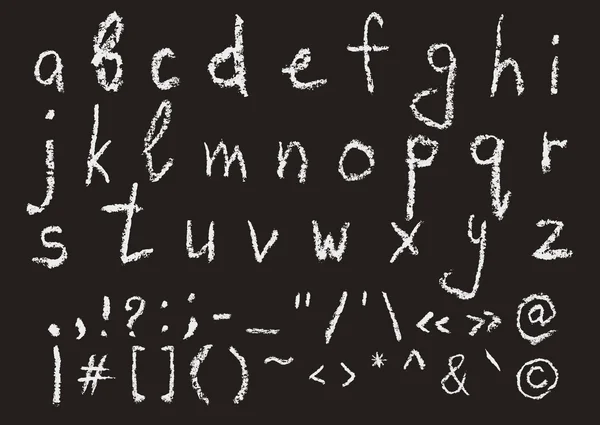 a b c d e f g h i
j k l m n o p q r
s t u v w x y z
. , ! ? : ; - _ " / ' \ « » @
¡ # [ ] ( ) ~ < > * ^ & ` ©